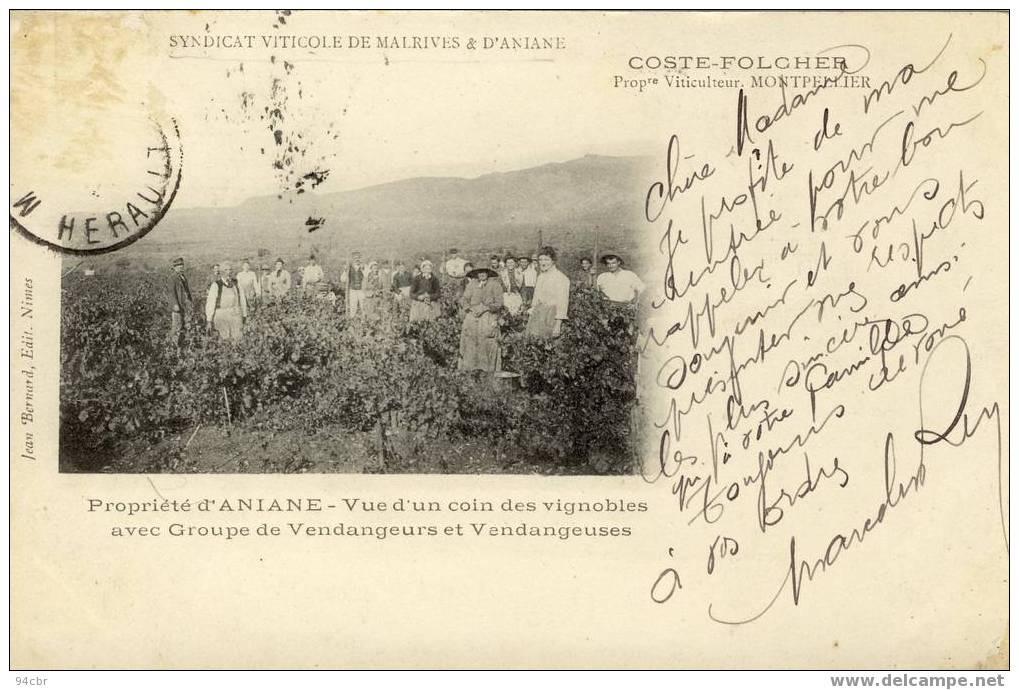 SYNDICAT VITICOLE DE MALRIVES & D'ANIANE
COSTE-FOLCHER
Propre Viticulteur. MONTPELLIER
HERAULT
Jean Bernard, Edit. Nimes
Chère Madame
Je profite de ma
rentrée pour me
rappeler à votre bon
souvenir et vous
présenter mes respects
les plus sincères ainsi
qu'à votre famille
Toujours dévoué
à vos ordres
Marcelin
Propriété d'ANIANE - Vue d'un coin des vignobles
avec Groupe de Vendangeurs et Vendangeuses
94cbr
www.delcampe.net